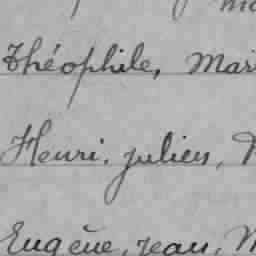 Théophile, Mari
Henri, julien,
Eugène, jean, M